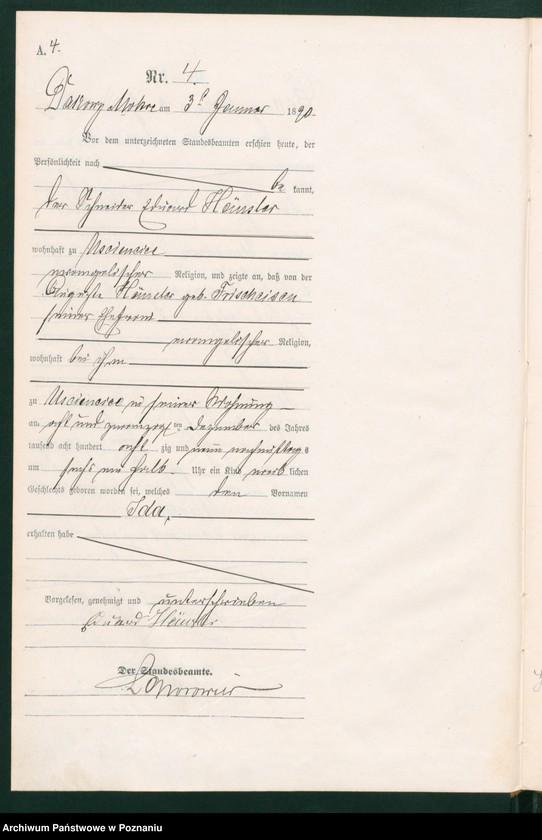 A. 4.
Nr. 4.
Bakorz Mokre am 3t Januar 1890.
Vor dem unterzeichneten Standesbeamten erschien heute, der
Persönlichkeit nach
be kannt,
der Schneider Eduard
wohnhaft zu Usciencice
evangelischer Religion, und zeigte an, daß von der
Auguste geb.
seiner Ehefrau
evangelischer Religion,
wohnhaft bei ihm
zu Usciencice in seiner Wohnung
am acht und zwanzigsten Dezember des Jahres
tausend acht hundert acht zig und neun nachmittags
um sechs ein halb Uhr ein Kind weib lichen
Geschlechts geboren worden sei, welches den Vornamen
Ida,
erhalten habe
Vorgelesen, genehmigt und unterschrieben
Eduard
Der Standesbeamte.
Archiwum Państwowe w Poznaniu